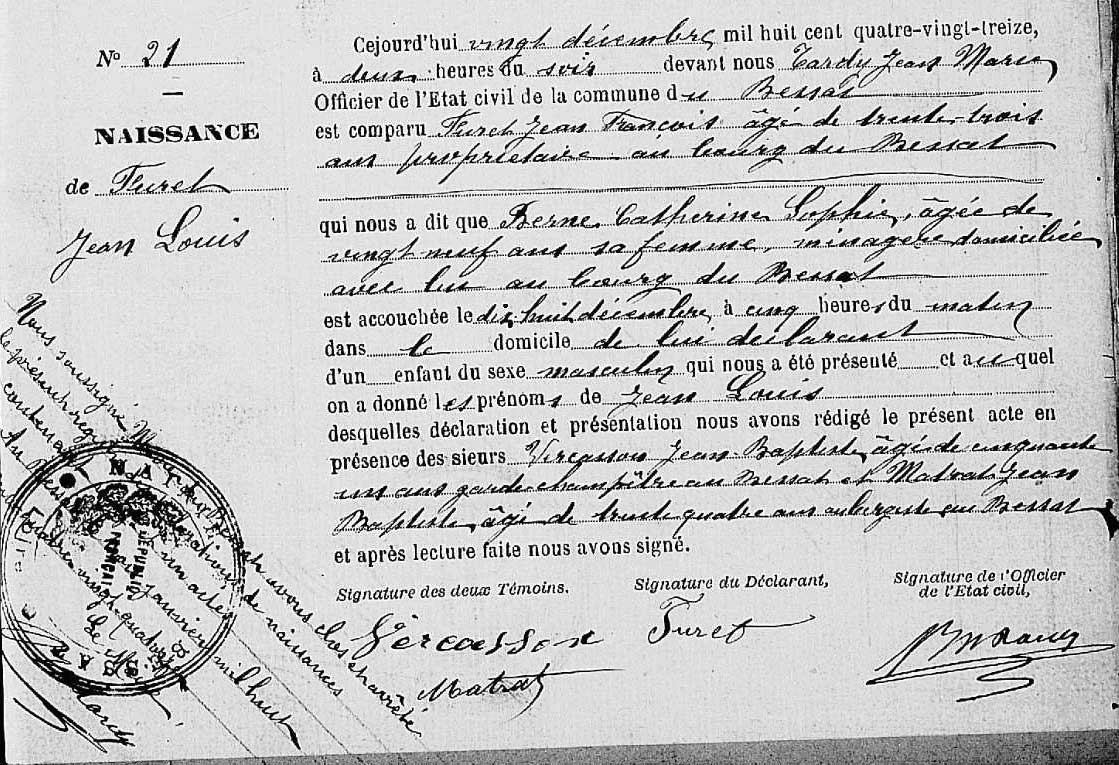 Nº 21
NAISSANCE
de Furet
Jean Louis
Cejourd'hui vingt décembre mil huit cent quatre-vingt-treize,
à deux heures du soir devant nous Tardy Jean Marie
Officier de l'Etat civil de la commune du Bessat
est comparu Furet Jean François âgé de trente-trois
ans propriétaire au bourg du Bessat
qui nous a dit que Berne Catherine Sophie, âgée de
vingt neuf ans sa femme, ménagère domiciliée
avec lui au bourg du Bessat
est accouchée le dix huit décembre à cinq heures du matin
dans le domicile de lui déclarant
d'un enfant du sexe masculin qui nous a été présenté et auquel
on a donné les prénoms de Jean Louis
desquelles déclaration et présentation nous avons rédigé le présent acte en
présence des sieurs Vercasson Jean-Baptiste, âgé de cinquante
un ans garde-champêtre au Bessat et Matrat Jean
Baptiste, âgé de trente quatre ans aubergiste au Bessat
et après lecture faite nous avons signé.
Signature des deux Témoins.
Signature du Déclarant,
Signature de l'Officier
de l'Etat civil,
Vercasson
Furet
Matrat
Nous soussigné
le présent registre
contenant un actes de naissances
avons clos et arrêté
Au Bessat le janvier mil huit
quatre vingt quatorze
Le
Tardy
RÉPUBLIQUE
FRANÇAISE